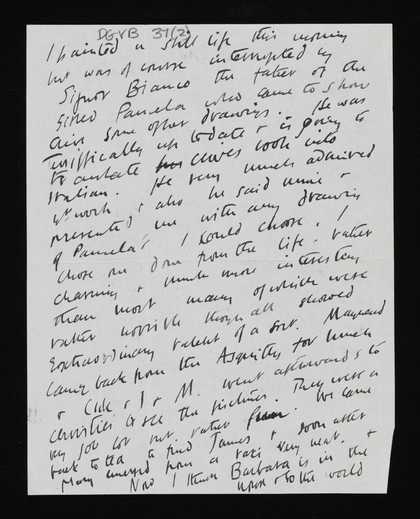 DGVB 37(2)
I painted a still life this morning
but was of course interrupted by
Signor Bianco the father of the
gifted Pamela who came to show
some other drawings. He was
terrifically up to date & is going to
translate Clives book into
Italian. He very much admired
work & also he said mine &
presented me with any drawing
of Pamela's I could choose. I
chose one done from the life. rather
charming & much more interesting
than most many of which were
rather horrible though all showed
extraordinary talent of a sort. Maynard
came back from the Asquiths for lunch
& Clive & I & M. went afterwards to
Christies to see the pictures. They were a
job lot rather. We came
back to tea to find James & soon after
emerged from a taxi very neat. &
Now I think Barbara is in the
house & to the world